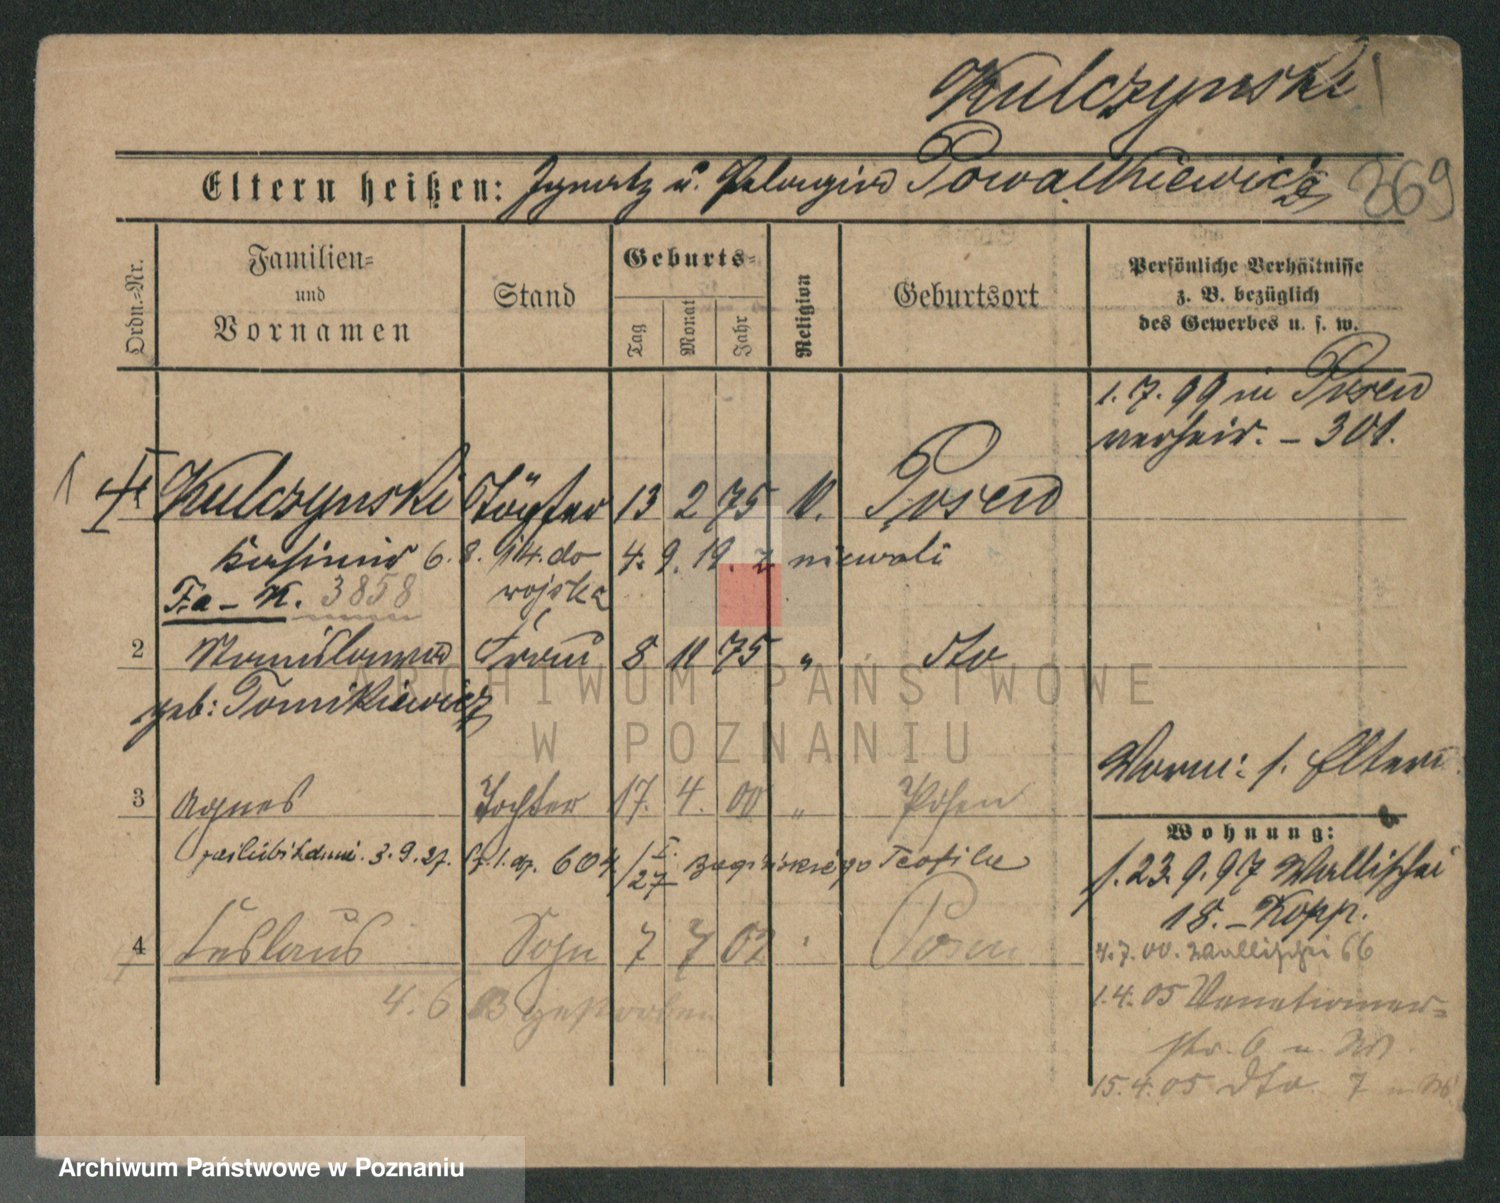 Kulczynski
Eltern heißen: Ignatz u. Pelagia Powalkiewicz
369
Ordn.=Nr.
Familien=
und
Vornamen
Stand
Geburts=
Tag
Monat
Jahr
Religion
Geburtsort
Persönliche Verhältnisse
z. B. bezüglich
des Gewerbes u. s. w.
1.7.99 in Posen
verheir. - 301.
1 Kulczynski Töpfer 13 2 75 K. Posen
Kasimir 6. 8. 14. do 4. 9. 19. z niewoli
wojska
Fa - K. 3858
2 Stanislawa Frau 8 11 75 " dto
geb: Tomikiewicz
Vorm: s. Eltern
3 Agnes Tochter 17. 4. 00 " Posen
Wohnung:
zaślubił dnia 3.9.27. 604/27 Teofila
s. 23.9.97 Wallischei
18. - Kopp.
4 Ceslaus Sohn 7 7 02 " Posen
4.7.00. Wallischei 66
4. 6 03 gestorben
1.4.05 Venetianer=
str. 6
15.4.05 dto. 7
ARCHIWUM PAŃSTWOWE
W POZNANIU
Archiwum Państwowe w Poznaniu